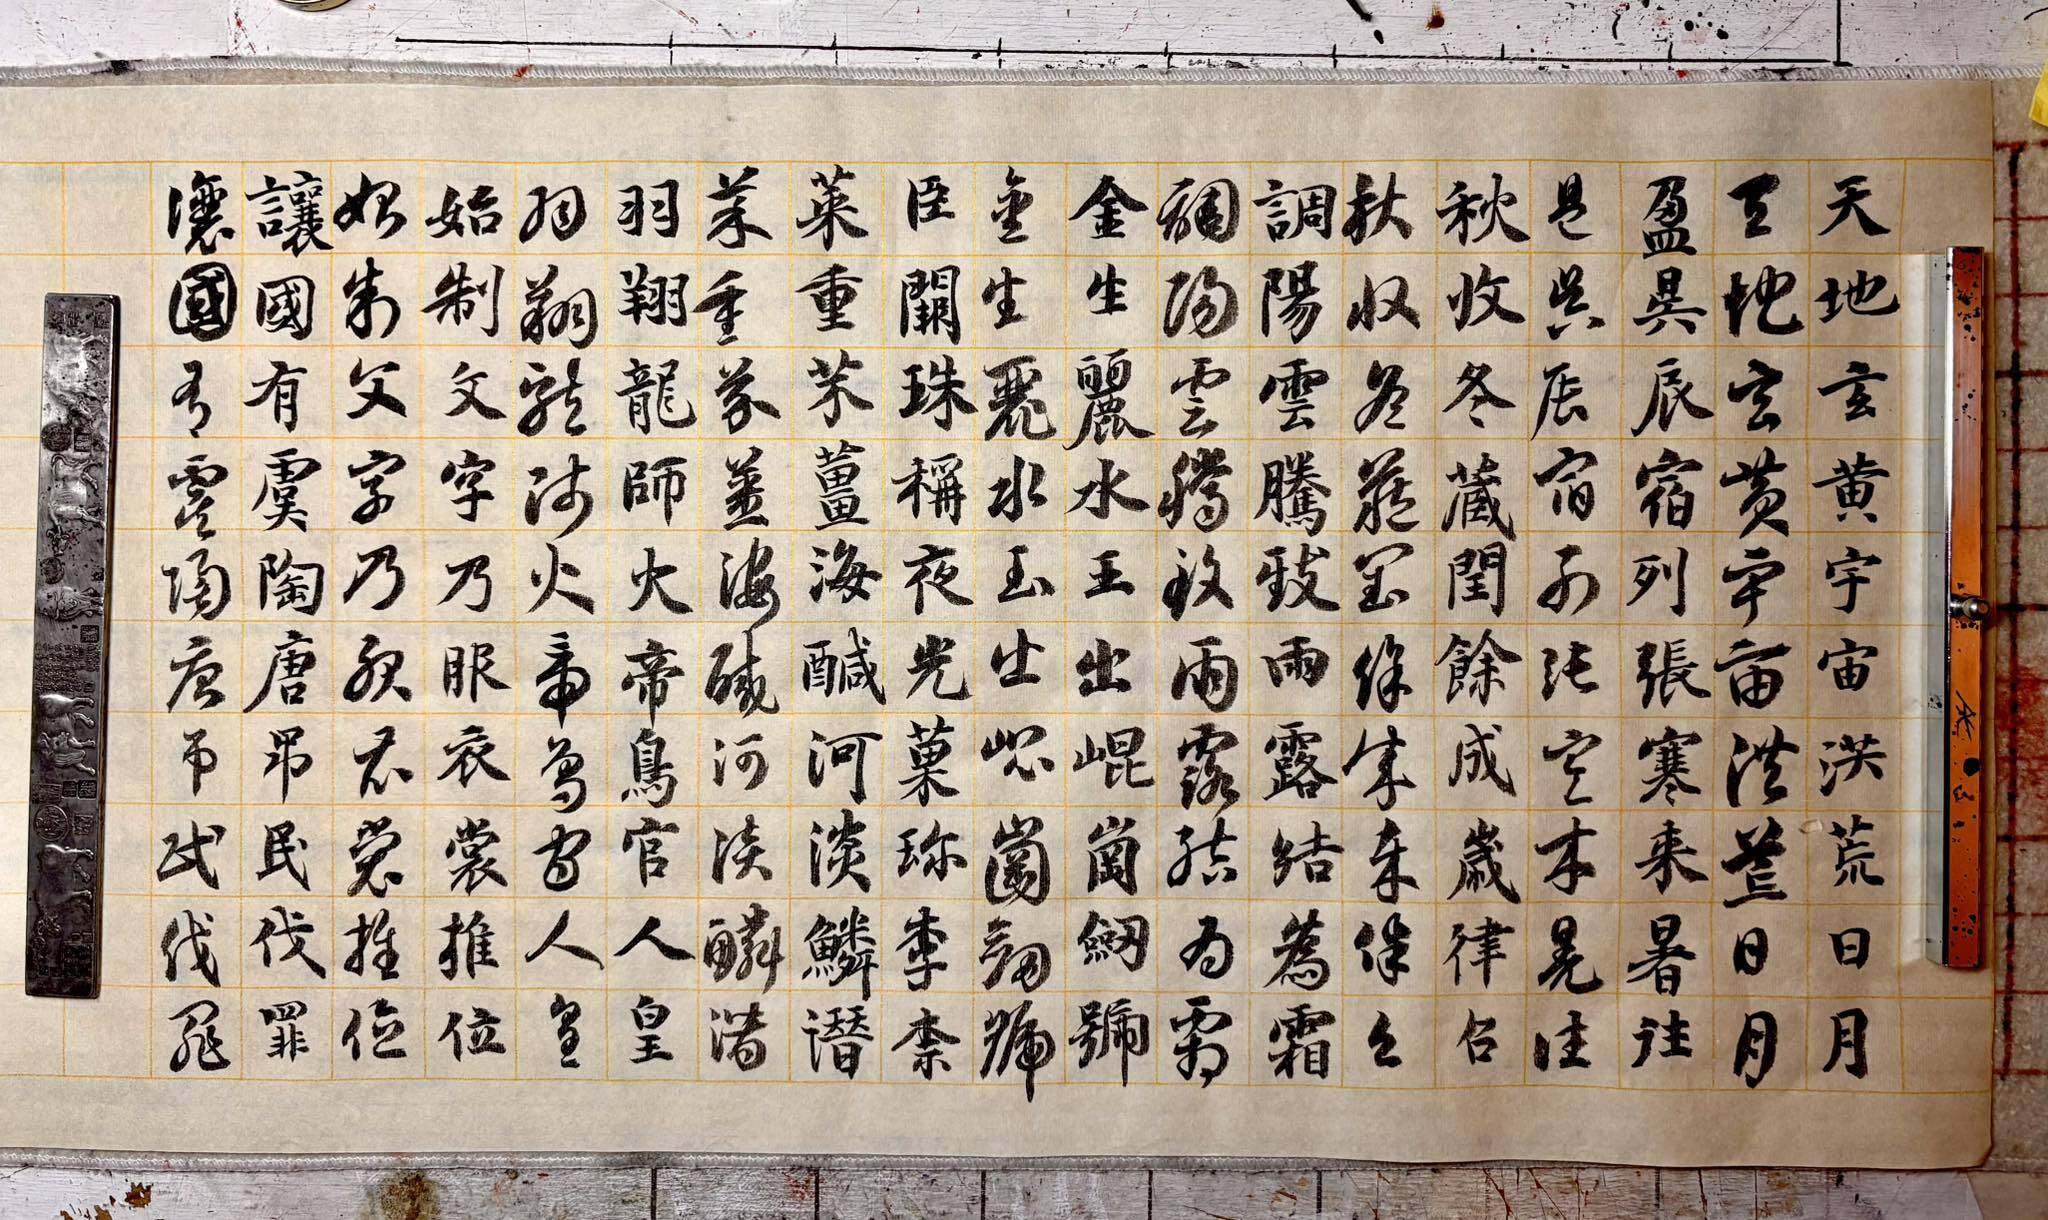 天地玄黄宇宙洪荒日月
天地玄黄宇宙洪荒日月
盈昃辰宿列張寒来暑往
盈昃辰宿列張寒来暑往
秋收冬藏閏餘成歲律召
秋收冬藏閏餘成歲律召
調陽雲騰致雨露結為霜
調陽雲騰致雨露結為霜
金生麗水玉出崐崗劒號
金生麗水玉出崐崗劒號
臣闕珠稱夜光菓珍李柰
菜重芥薑海醎河淡鱗潛
菜重芥薑海醎河淡鱗潛
羽翔龍師火帝鳥官人皇
羽翔龍師火帝鳥官人皇
始制文字乃服衣裳推位
始制文字乃服衣裳推位
讓國有虞陶唐弔民伐罪
讓國有虞陶唐弔民伐罪